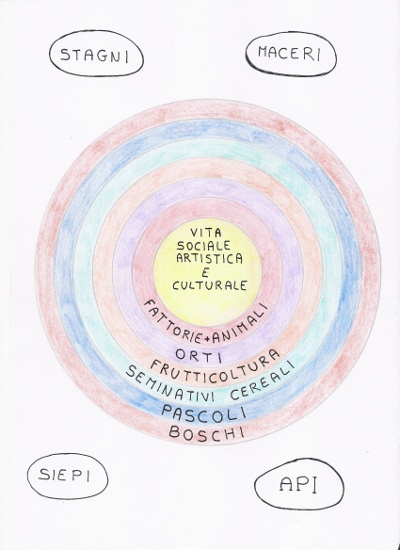 STAGNI
MACERI
VITA
SOCIALE
ARTISTICA
E
CULTURALE
FATTORIE+ANIMALI
ORTI
FRUTTICOLTURA
SEMINATIVI CEREALI
PASCOLI
BOSCHI
SIEPI
API